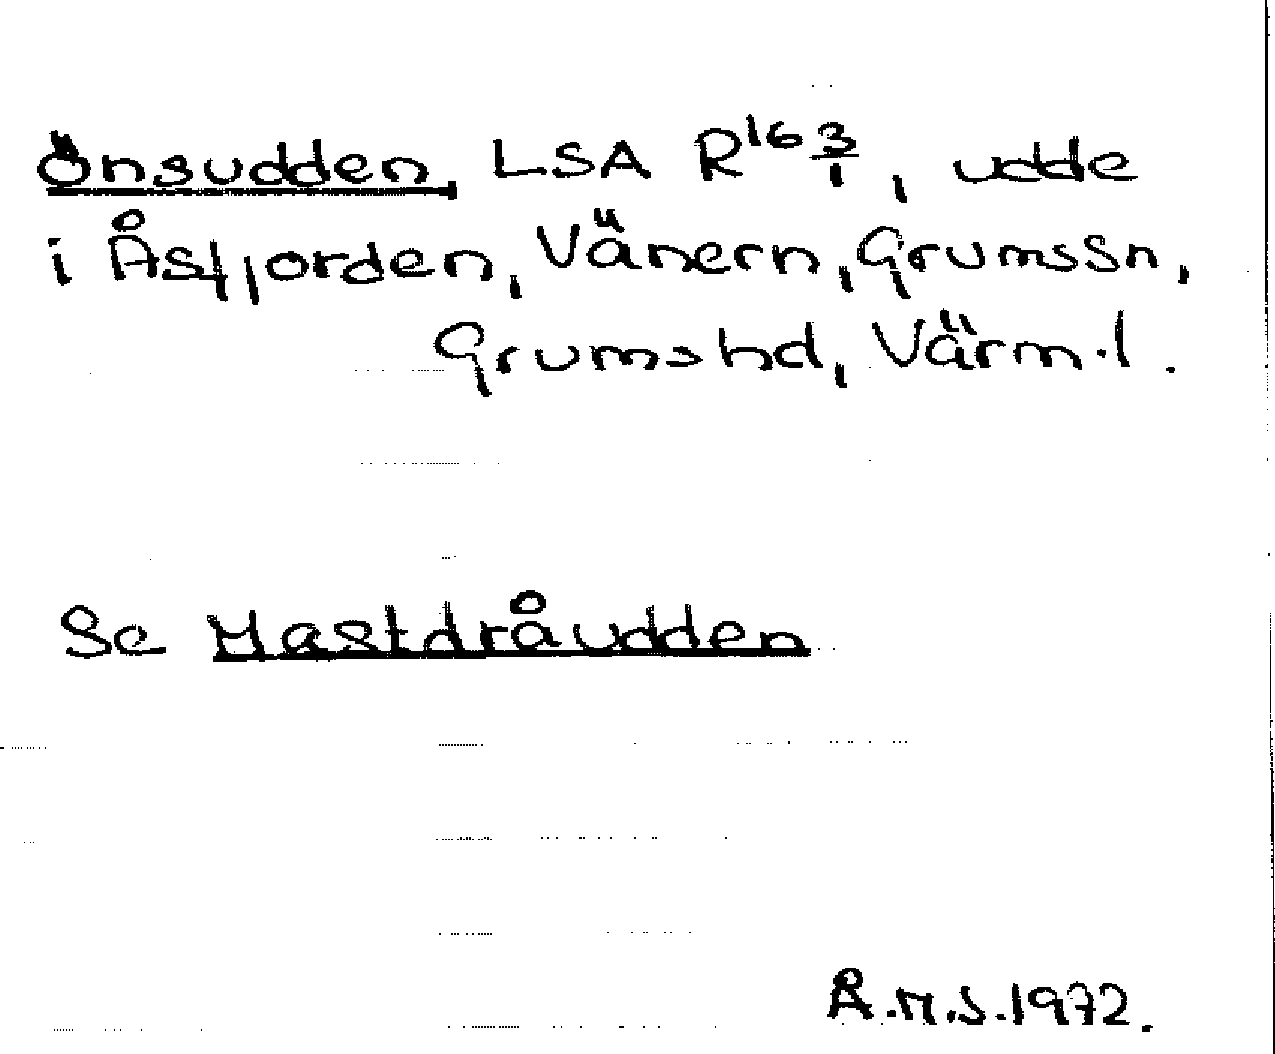 Önsudden, LSA R¹⁶ 3/1, udde
i Åsfjorden, Vänern, Grums sn,
Grums hd, Värml.
Se Mastdråudden
Å.M.S.1972.